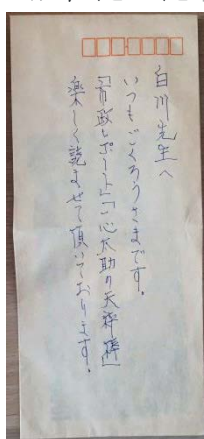 白川先生へ
いつもごくろうさまです。
「市政レポート」「一心太助の天秤棒」
楽しく読ませて頂いております。